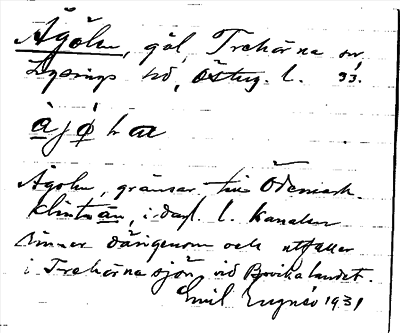 Ågöln, göl, Trehörna sn
Lysings hd, Österg. l. 33.
å j ø l n
Ågöln, gränsar till Ödemark.
i l. kanalen
rinner därigenom och utfaller
i Trehörnasjön, vid Bovikalandet.
Emil 1931